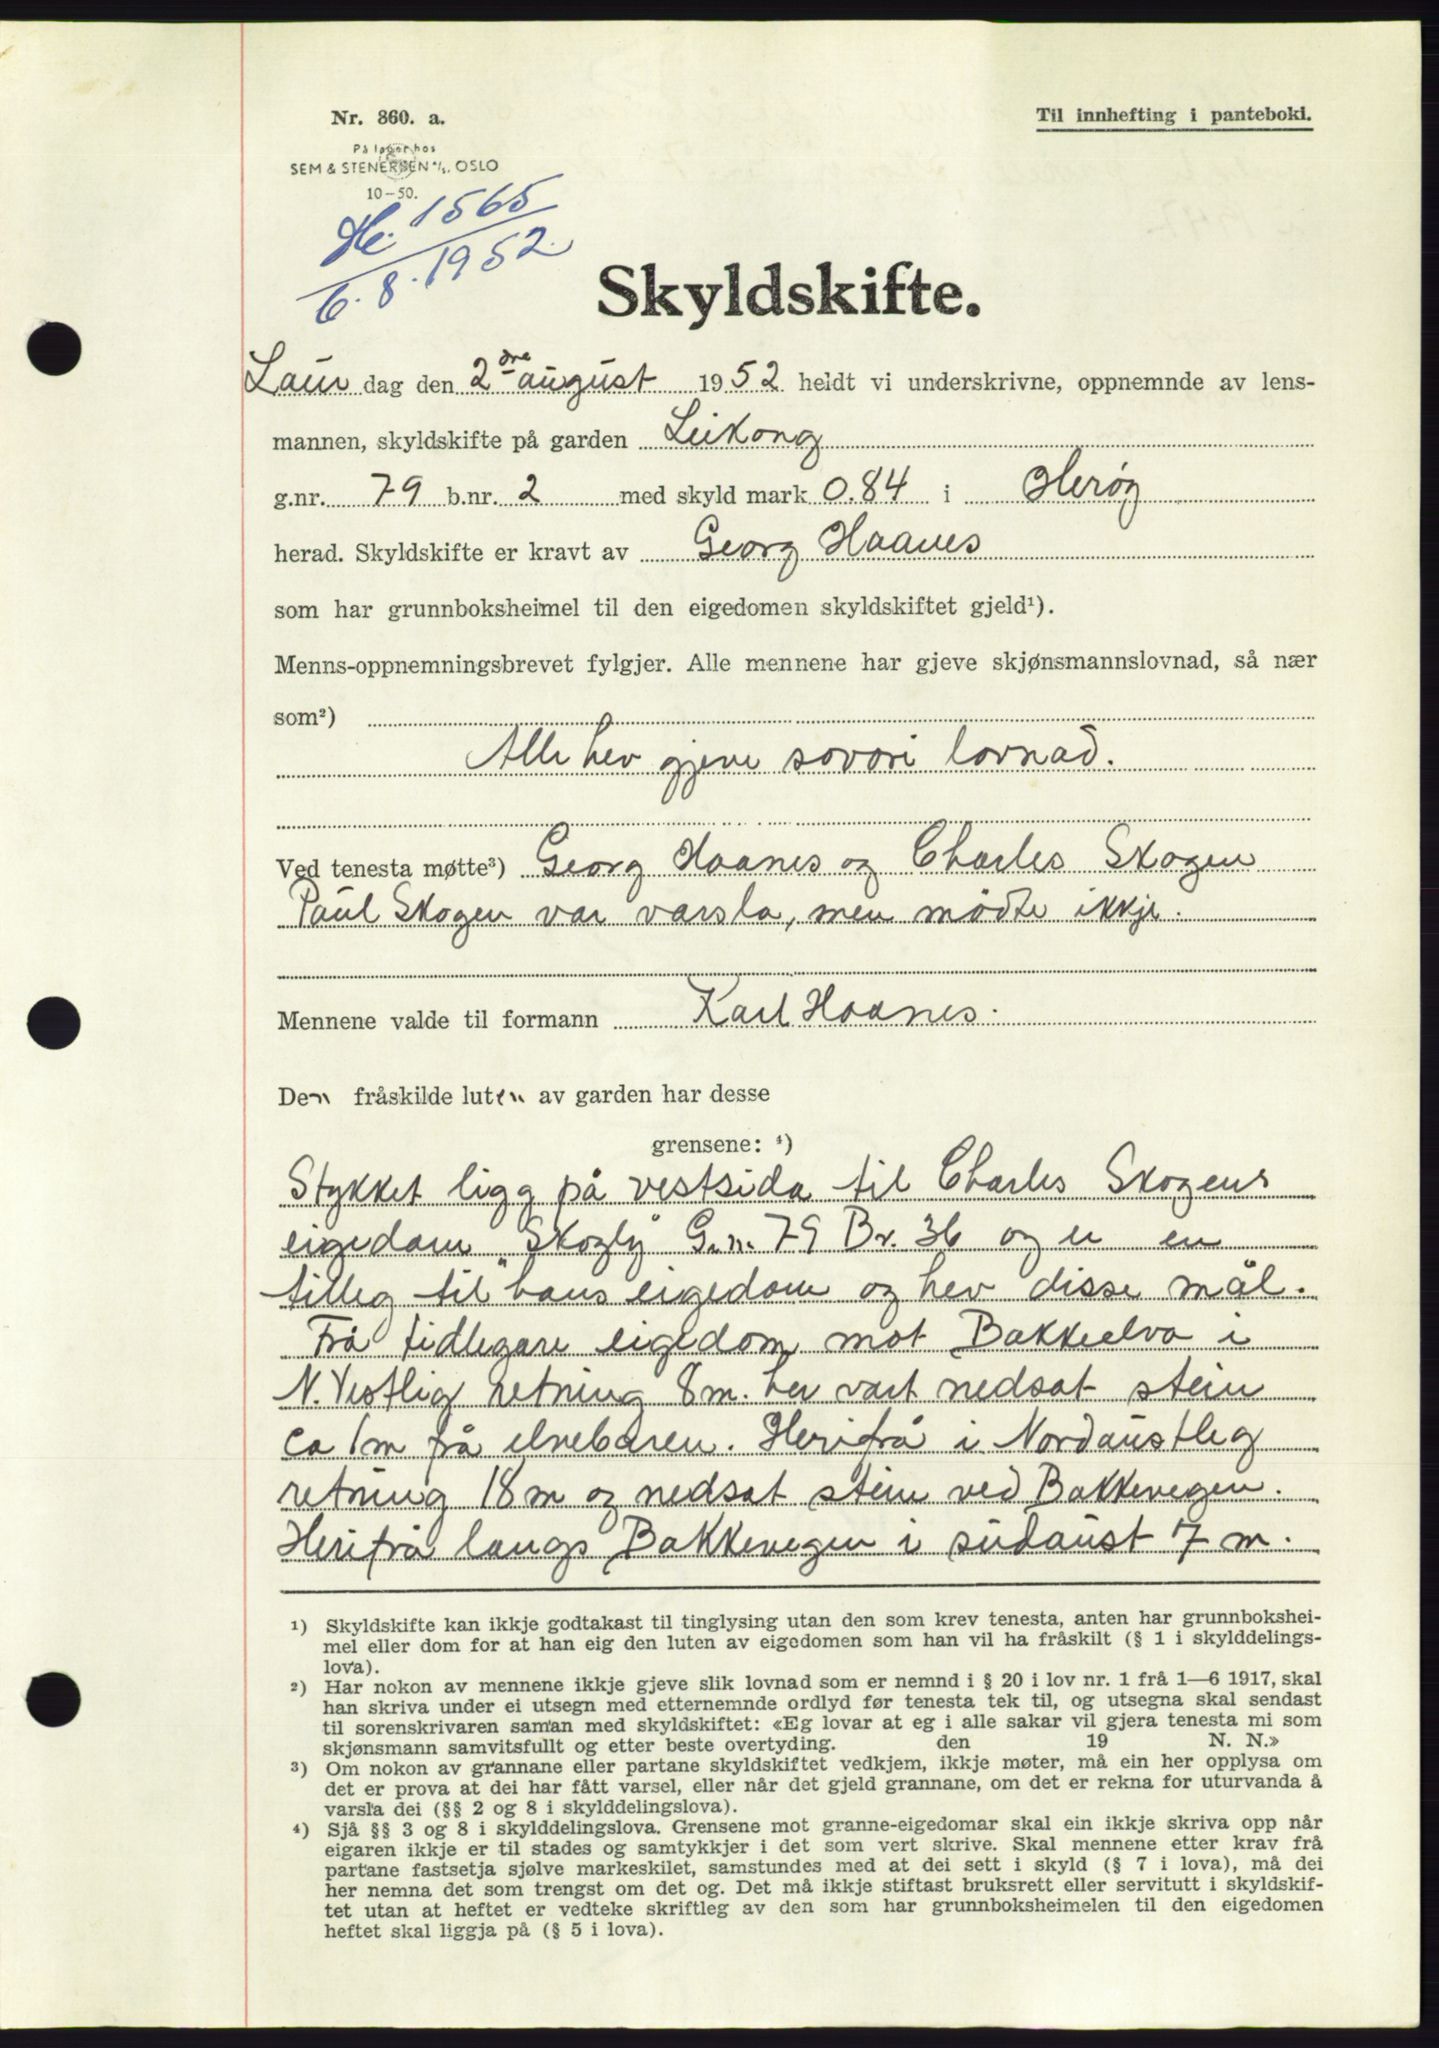 Nr. 860. a.
Til innhefting i panteboki.
På lager hos
SEM & STENERSEN A/S. OSLO
10–50.
He. 1565
6.8.1952.
Skyldskifte.
Laur dag den 2dre august 1952 heldt vi underskrivne, oppnemnde av lens-
mannen, skyldskifte på garden Leikong
g.nr. 79 b.nr. 2 med skyld mark 0.84 i Herøy
herad. Skyldskifte er kravt av Georg Haanes
som har grunnboksheimel til den eigedomen skyldskiftet gjeld¹).
Menns-oppnemningsbrevet fylgjer. Alle mennene har gjeve skjønsmannslovnad, så nær
som²)
Alle hev gjeve sovori lovnad.
Ved tenesta møtte³) Georg Haanes og Charles Skogen
Paul Skogen var varsla, men mødte ikkje.
Mennene valde til formann Karl Haanes.
Den fråskilde luten av garden har desse
grensene: ⁴)
Stykket ligg på vestsida til Charles Skogens
eigedom "Skogly" G.n. 79 Br. 36 og er en
tilleg til hans eigedom og hev disse mål.
Frå tidlegare eigedom mot Bakkeelva i
N.Vestlig retning 8 m. her vart nedsat stein
ca 1 m frå elvebaren. Herifrå i Nordaustleg
retning 18 m og nedsat stein ved Bakkevegen.
Herifrå langs Bakkevegen i sudaust 7 m.
¹) Skyldskifte kan ikkje godtakast til tinglysing utan den som krev tenesta, anten har grunnbokshei-
mel eller dom for at han eig den luten av eigedomen som han vil ha fråskilt (§ 1 i skylddelings-
lova).
²) Har nokon av mennene ikkje gjeve slik lovnad som er nemnd i § 20 i lov nr. 1 frå 1—6 1917, skal
han skriva under ei utsegn med etternemnde ordlyd før tenesta tek til, og utsegna skal sendast
til sorenskrivaren saman med skyldskiftet: «Eg lovar at eg i alle sakar vil gjera tenesta mi som
skjønsmann samvitsfullt og etter beste overtyding. den 19 N. N.»
³) Om nokon av grannane eller partane skyldskiftet vedkjem, ikkje møter, må ein her opplysa om
det er prova at dei har fått varsel, eller når det gjeld grannane, om det er rekna for uturvanda å
varsla dei (§§ 2 og 8 i skylddelingslova).
⁴) Sjå §§ 3 og 8 i skylddelingslova. Grensene mot granne-eigedomar skal ein ikkje skriva opp når
eigaren ikkje er til stades og samtykkjer i det som vert skrive. Skal mennene etter krav frå
partane fastsetja sjølve markeskilet, samstundes med at dei sett i skyld (§ 7 i lova), må dei
her nemna det som trengst om det og. Det må ikkje stiftast bruksrett eller servitutt i skyldskif-
tet utan at heftet er vedteke skriftleg av den som har grunnboksheimelen til den eigedomen
heftet skal liggja på (§ 5 i lova).